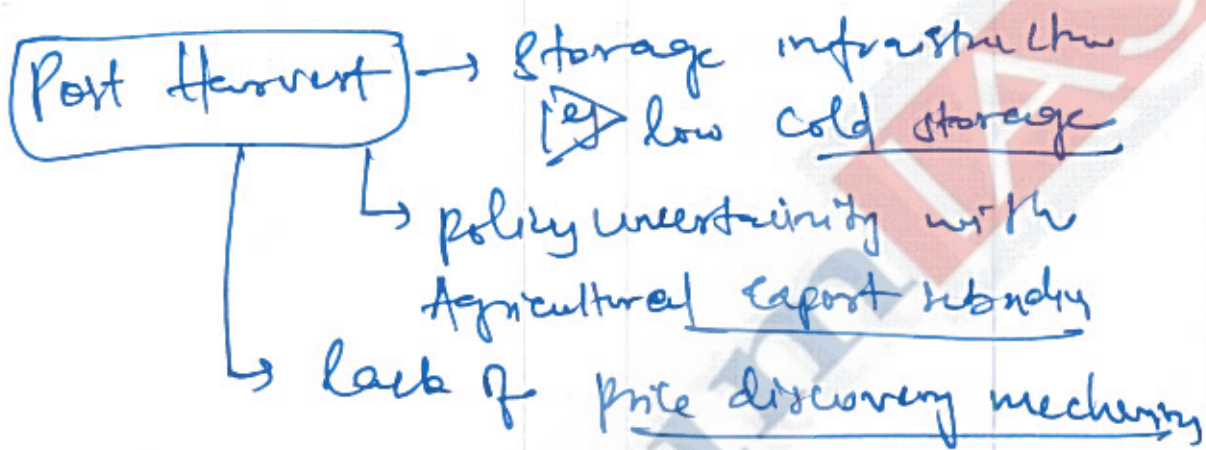 Post Harvest → Storage infrastructure
eg low cold storage
→ policy uncertainity with
Agricultural export subsidy
→ lack of price discovery mechanism
IAS
m